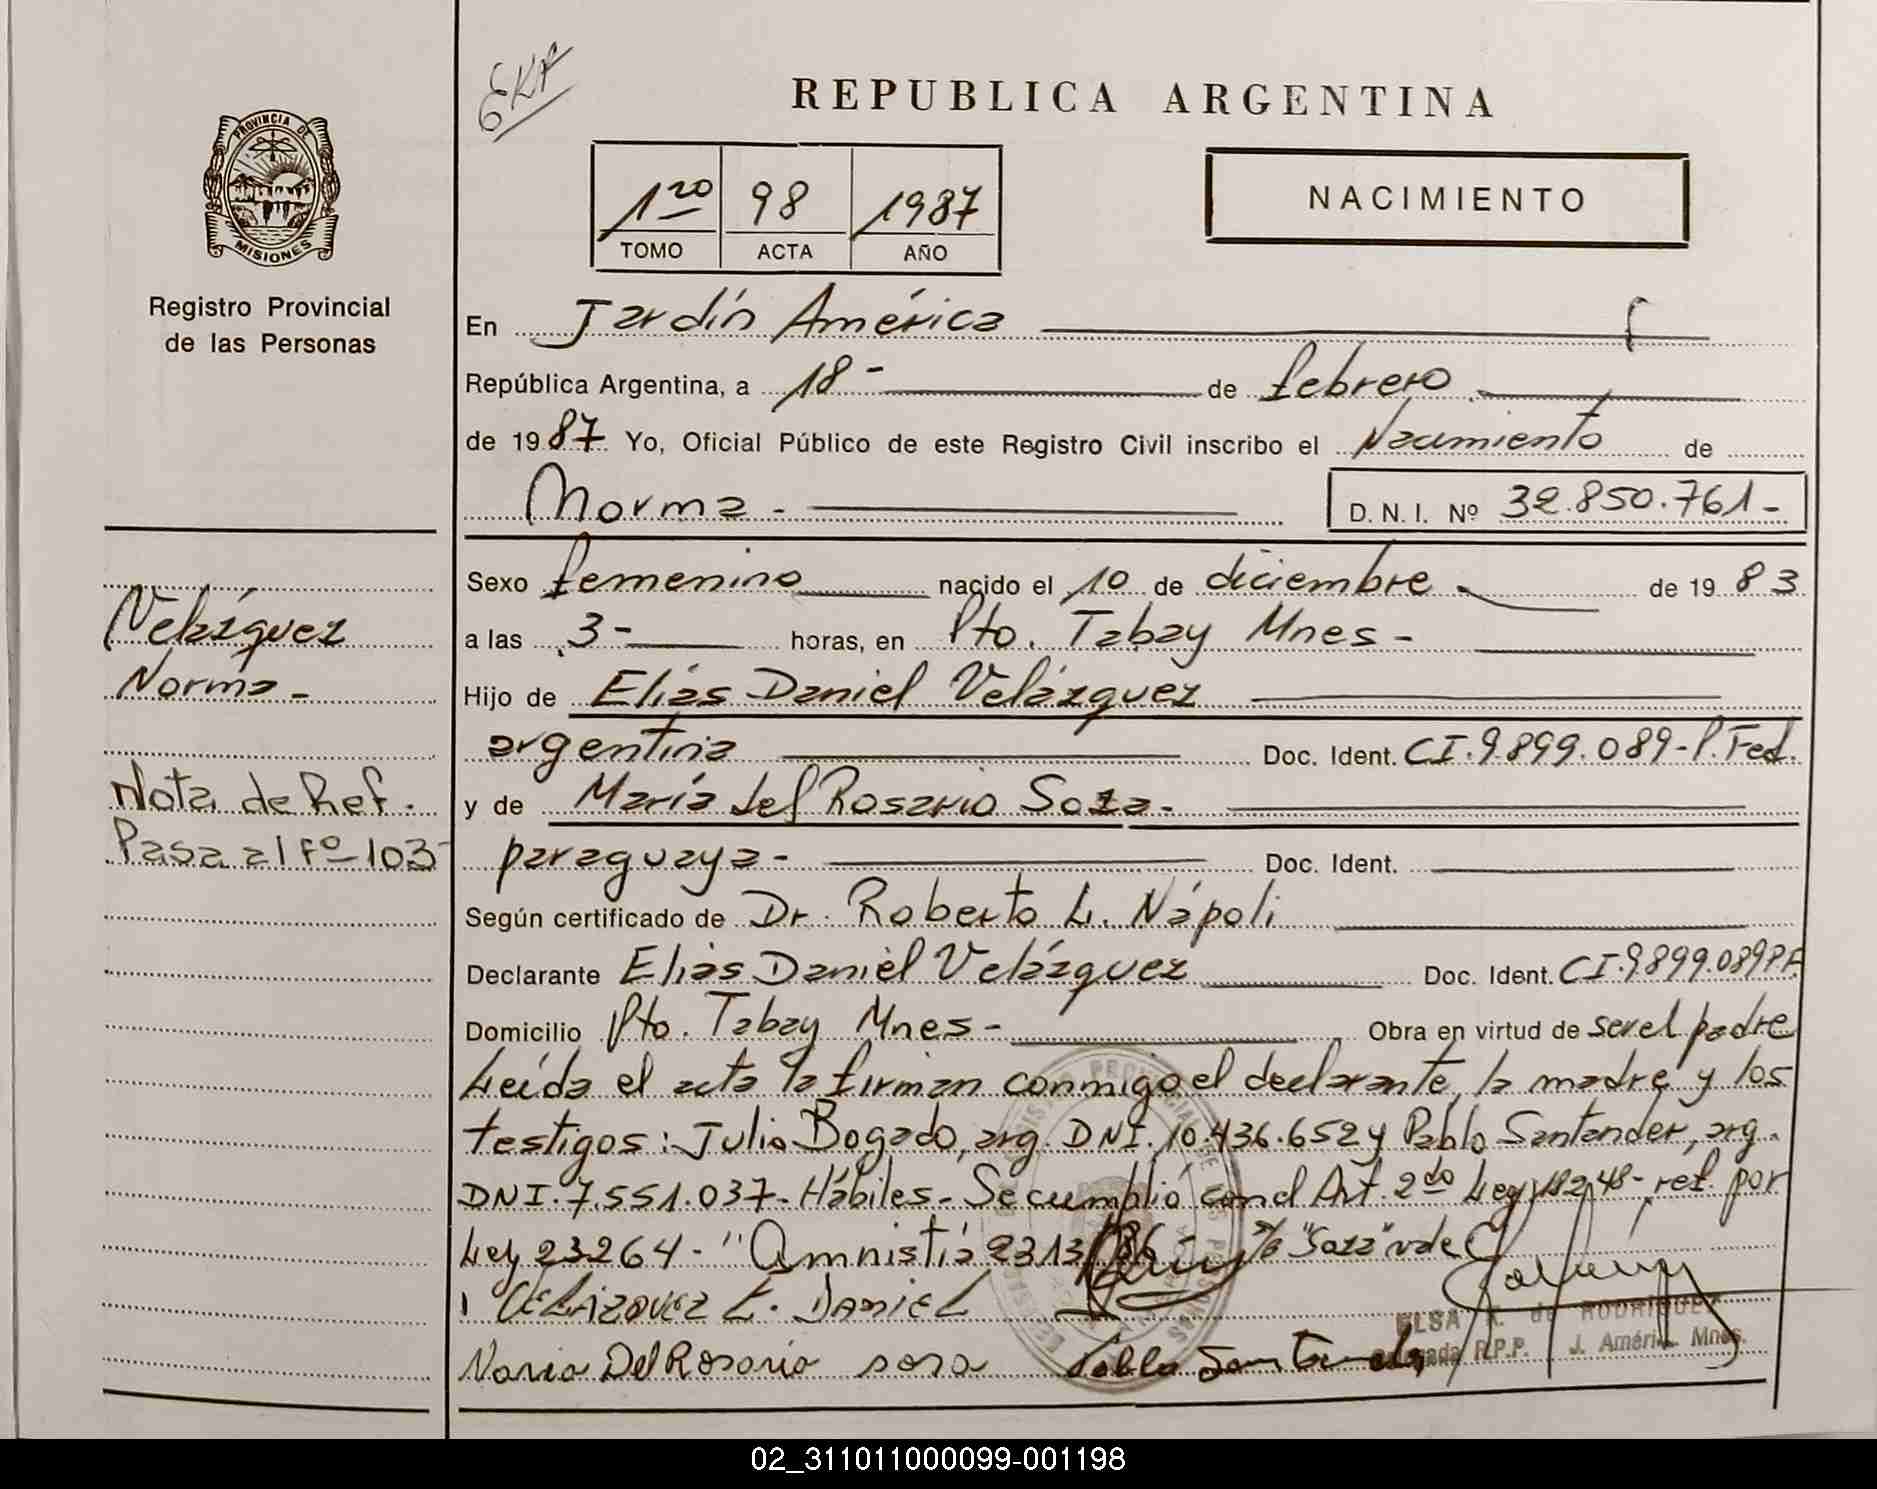 EKA
REPUBLICA ARGENTINA
PROVINCIA DE
MISIONES
1ro 98 1987
TOMO ACTA AÑO
NACIMIENTO
Registro Provincial
de las Personas
En Jardín América
República Argentina, a 18 - de febrero
de 1987 Yo, Oficial Público de este Registro Civil inscribo el Nacimiento de
Norma - D. N. I. Nº 32.850.761 -
Sexo femenino nacido el 10 de diciembre - de 1983
a las 3 - horas, en Pto. Tabay Mnes -
Hijo de Elías Daniel Velázquez
argentina Doc. Ident. CI. 9.899.089 - P. Fed.
y de María del Rosario Soza -
paraguaya - Doc. Ident.
Según certificado de Dr. Roberto L. Nápoli
Declarante Elías Daniel Velázquez Doc. Ident. CI. 9.899.089 P.F.
Domicilio Pto. Tabay Mnes - Obra en virtud de ser el padre
Leída el acta la firman conmigo el declarante, la madre y los
testigos: Julio Bogado, arg. DNI. 10.436.652 y Pablo Santander, arg.
DNI. 7.551.037 - Hábiles - Se cumplió con el Art. 2do Ley 18248 - ref. por
Ley 23264 - "Amnistía 2313/86 - s/b "Soza" vale
VELAZQUEZ E. DANIEL
Maria Del Rosario sosa Pablo Santander
ELSA de RODRIGUEZ
R.P.P. J. América Mnes.
Velázquez
Norma -
Nota de Ref.
Pasa al Fº - 103 -
02_311011000099-001198